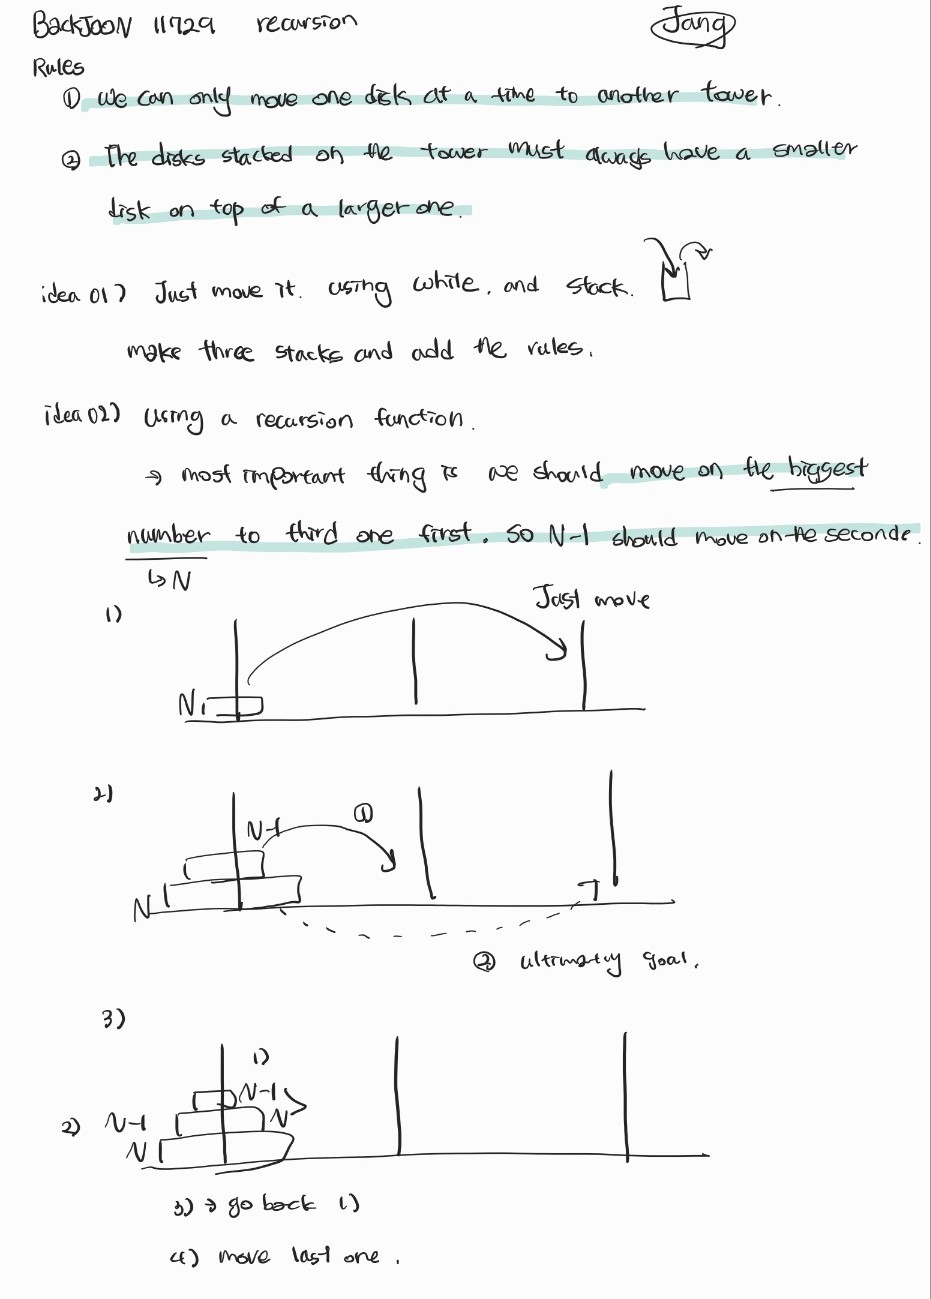 BackJOON 11729 recursion Jang
Rules
① we can only move one disk at a time to another tower.
② The disks stacked on the tower must always have a smaller
disk on top of a larger one.
idea 01) Just move it. using while, and stack.
make three stacks and add the rules.
idea 02) Using a recursion function.
→ most important thing is we should move on the biggest
number to third one first. So N-1 should move on the seconde.
↳ N
1) Just move
N
2)
N-1 ①
N
② ultimatly goal.
3)
1)
N-1
2) N-1 N
N
3) → go back 1)
4) move last one.